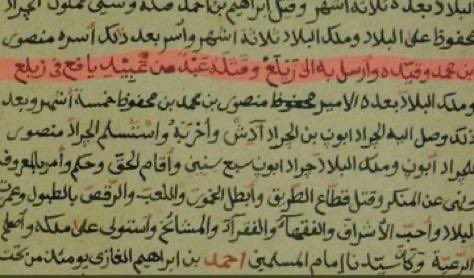 البلاد بعده ثلاثة اشهر وقتل ابراهيم بن احمد
محفوظ على البلاد وملك البلاد ثلاثة اشهر واسر بعد ذلك أسره منصور
بن محمد وقيده وارسل به الى زيلع وقتله عبد من عبيد يافع في زيلع
وملك البلاد بعده الامير منصور بن محمد بن محفوظ خمسة اشهر وبعد
ذلك وصل اليه الجراد ابون بن الجراد آدش وأخربه واستسلم الجراد منصور
للجراد ابون وملك البلاد جراد ابون سبع سنين وأقام الحق وحكم وأمر بالمعروف
ونهى عن المنكر وقتل قطاع الطريق وأبطل الخمور واللعب والرقص بالطبول وعمرت
البلاد وأحب الأشراق والفقهاء والفقراء والمشائخ واستولى على ملكه وأصلح
الرعية وكان سيدنا إمام المسلمين احمد بن ابراهيم الغازي يومئذ من تحت